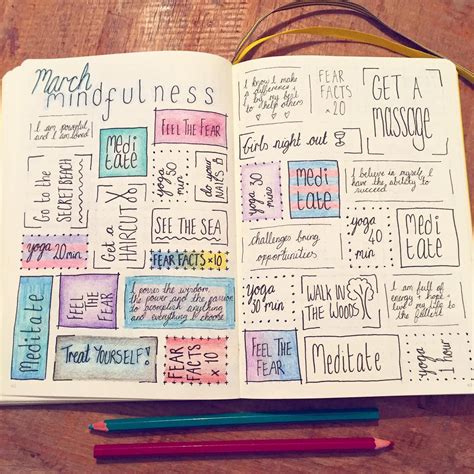 March
mindfulness
I am powerful
and I am loved
Medi
tate
FEEL THE FEAR
Go to the
SECRET BEACH
Get a
HAIRCUT
yoga 30
min
do your
NAILS
SEE THE SEA
yoga 20 min
FEAR FACTS x10
Meditate
FEEL
THE
FEAR
I posses the wisdom,
the power and the passion
to accomplish anything
and everything I choose
Treat YOURSELF!
FEAR
FACTS
x 10
I know I make
a difference
by my best
to help others
FEAR
FACTS
x20
GET A
MASSAGE
Girls night out
yoga 30
min
Medi
tate
I believe in myself, I
have the ability to
succeed
challenges bring
opportunities
yoga
40
min
Medi
tate
yoga
30 min
WALK IN
THE WOODS
I am full of
energy + hope
live my life to
the fullest
FEEL THE
FEAR
Meditate
yoga
1 hour